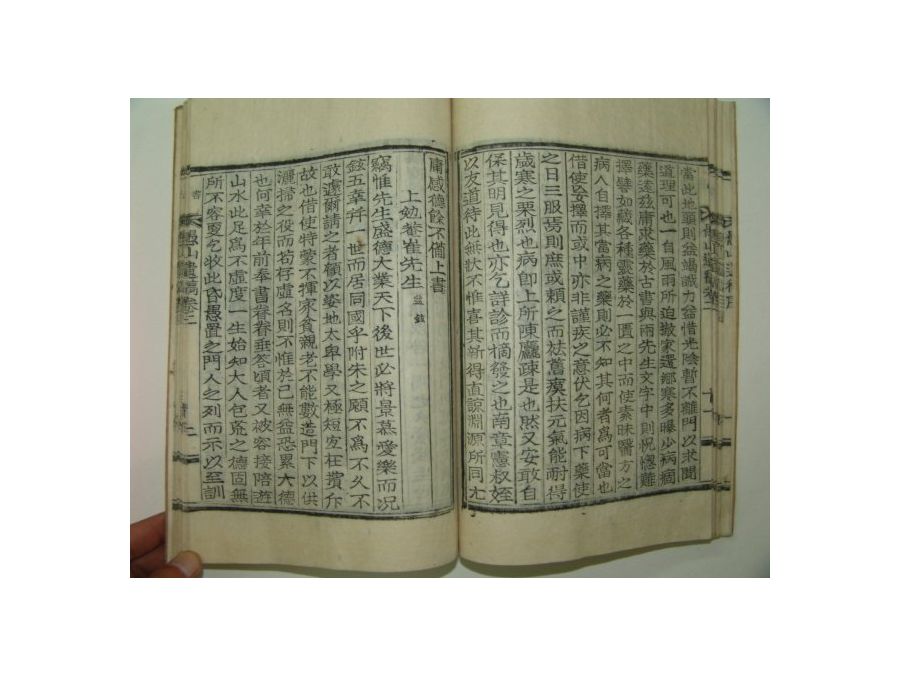 當此地頭則益竭識力益惜光陰暫不離門以求聞
道理可也一自風雨所迫撤家還鄉寒多曝少病痼
藥達玆庸求藥於古書與兩先生文字中則怳惚難
擇譬如藏各種靈藥於一匱之中而使素昧醫方之
病人自擇其當病之藥則必不知其何者爲可當也
借使妄擇而或中亦非謹疾之意伏乞因病下藥使
之日三服焉則庶或賴之而袪舊瘼扶元氣能耐得
歲寒之栗烈也病卽上所陳麤疎是也然又安敢自
保其明見得也亦乞詳診而摘發之也南章憲叔姪
以友道待此無狀不惟喜其新得直諒淵源所同尤
庸感德餘不備上書
上勉菴崔先生 益鉉
竊惟先生盛德大業天下後世必將景慕愛樂而况
鉉五幸并一世而居同國乎附朱之願不爲不久不
敢遽爾請之者顧以姿地太卑學又極短空枉擯斥
故也借使特蒙不揮家貧親老不能數造門下以供
灑掃之役而苟存虛名則不惟於己無益恐累大德
也何幸於年前奉書眷眷垂答頃者又被容接陪遊
山水此足爲不虛度一生始知大人包荒之德固無
所不容更乞收此昏愚置之門人之列而示以至訓
書
愚山遺稿卷三